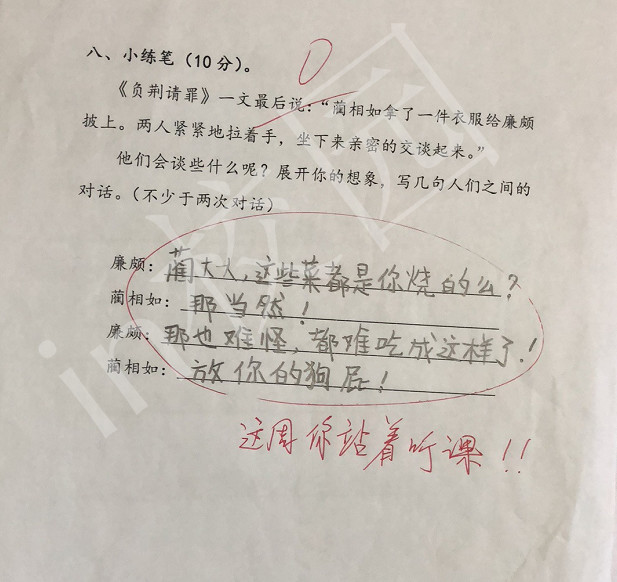 八、小练笔（10分）。
0
《负荆请罪》一文最后说：“蔺相如拿了一件衣服给廉颇
披上。两人紧紧地拉着手，坐下来亲密的交谈起来。”
他们会谈些什么呢？展开你的想象，写几句人们之间的
对话。（不少于两次对话）
廉颇：蔺大大，这些菜都是你烧的么？
蔺相如：那当然！
廉颇：那也难怪，都难吃成这样了！
蔺相如：放你的狗屁！
这周你站着听课！！